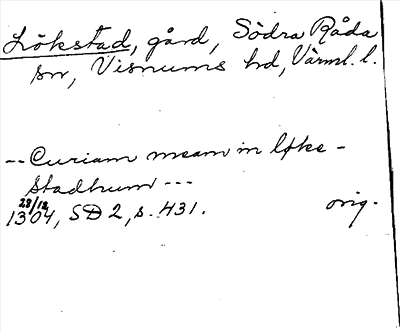 Lökstad, gård, Södra Råda
sn, Visnums hd, Värml. l.
-- Curiam meam in løke-
stadhum ---
28/12
1304, SD 2, s. 431. orig.